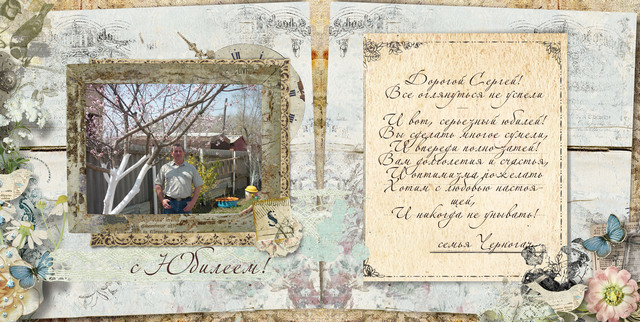 с Юбилеем!
Дорогой Сергей!
Все оглянуться не успели
И вот, серьезный юбилей!
Вы сделать многое сумели,
И впереди полно затей!
Вам долголетия и счастья,
И оптимизма пожелать
Хотим с любовью настоя-
щей,
И никогда не унывать!
семья Черногач